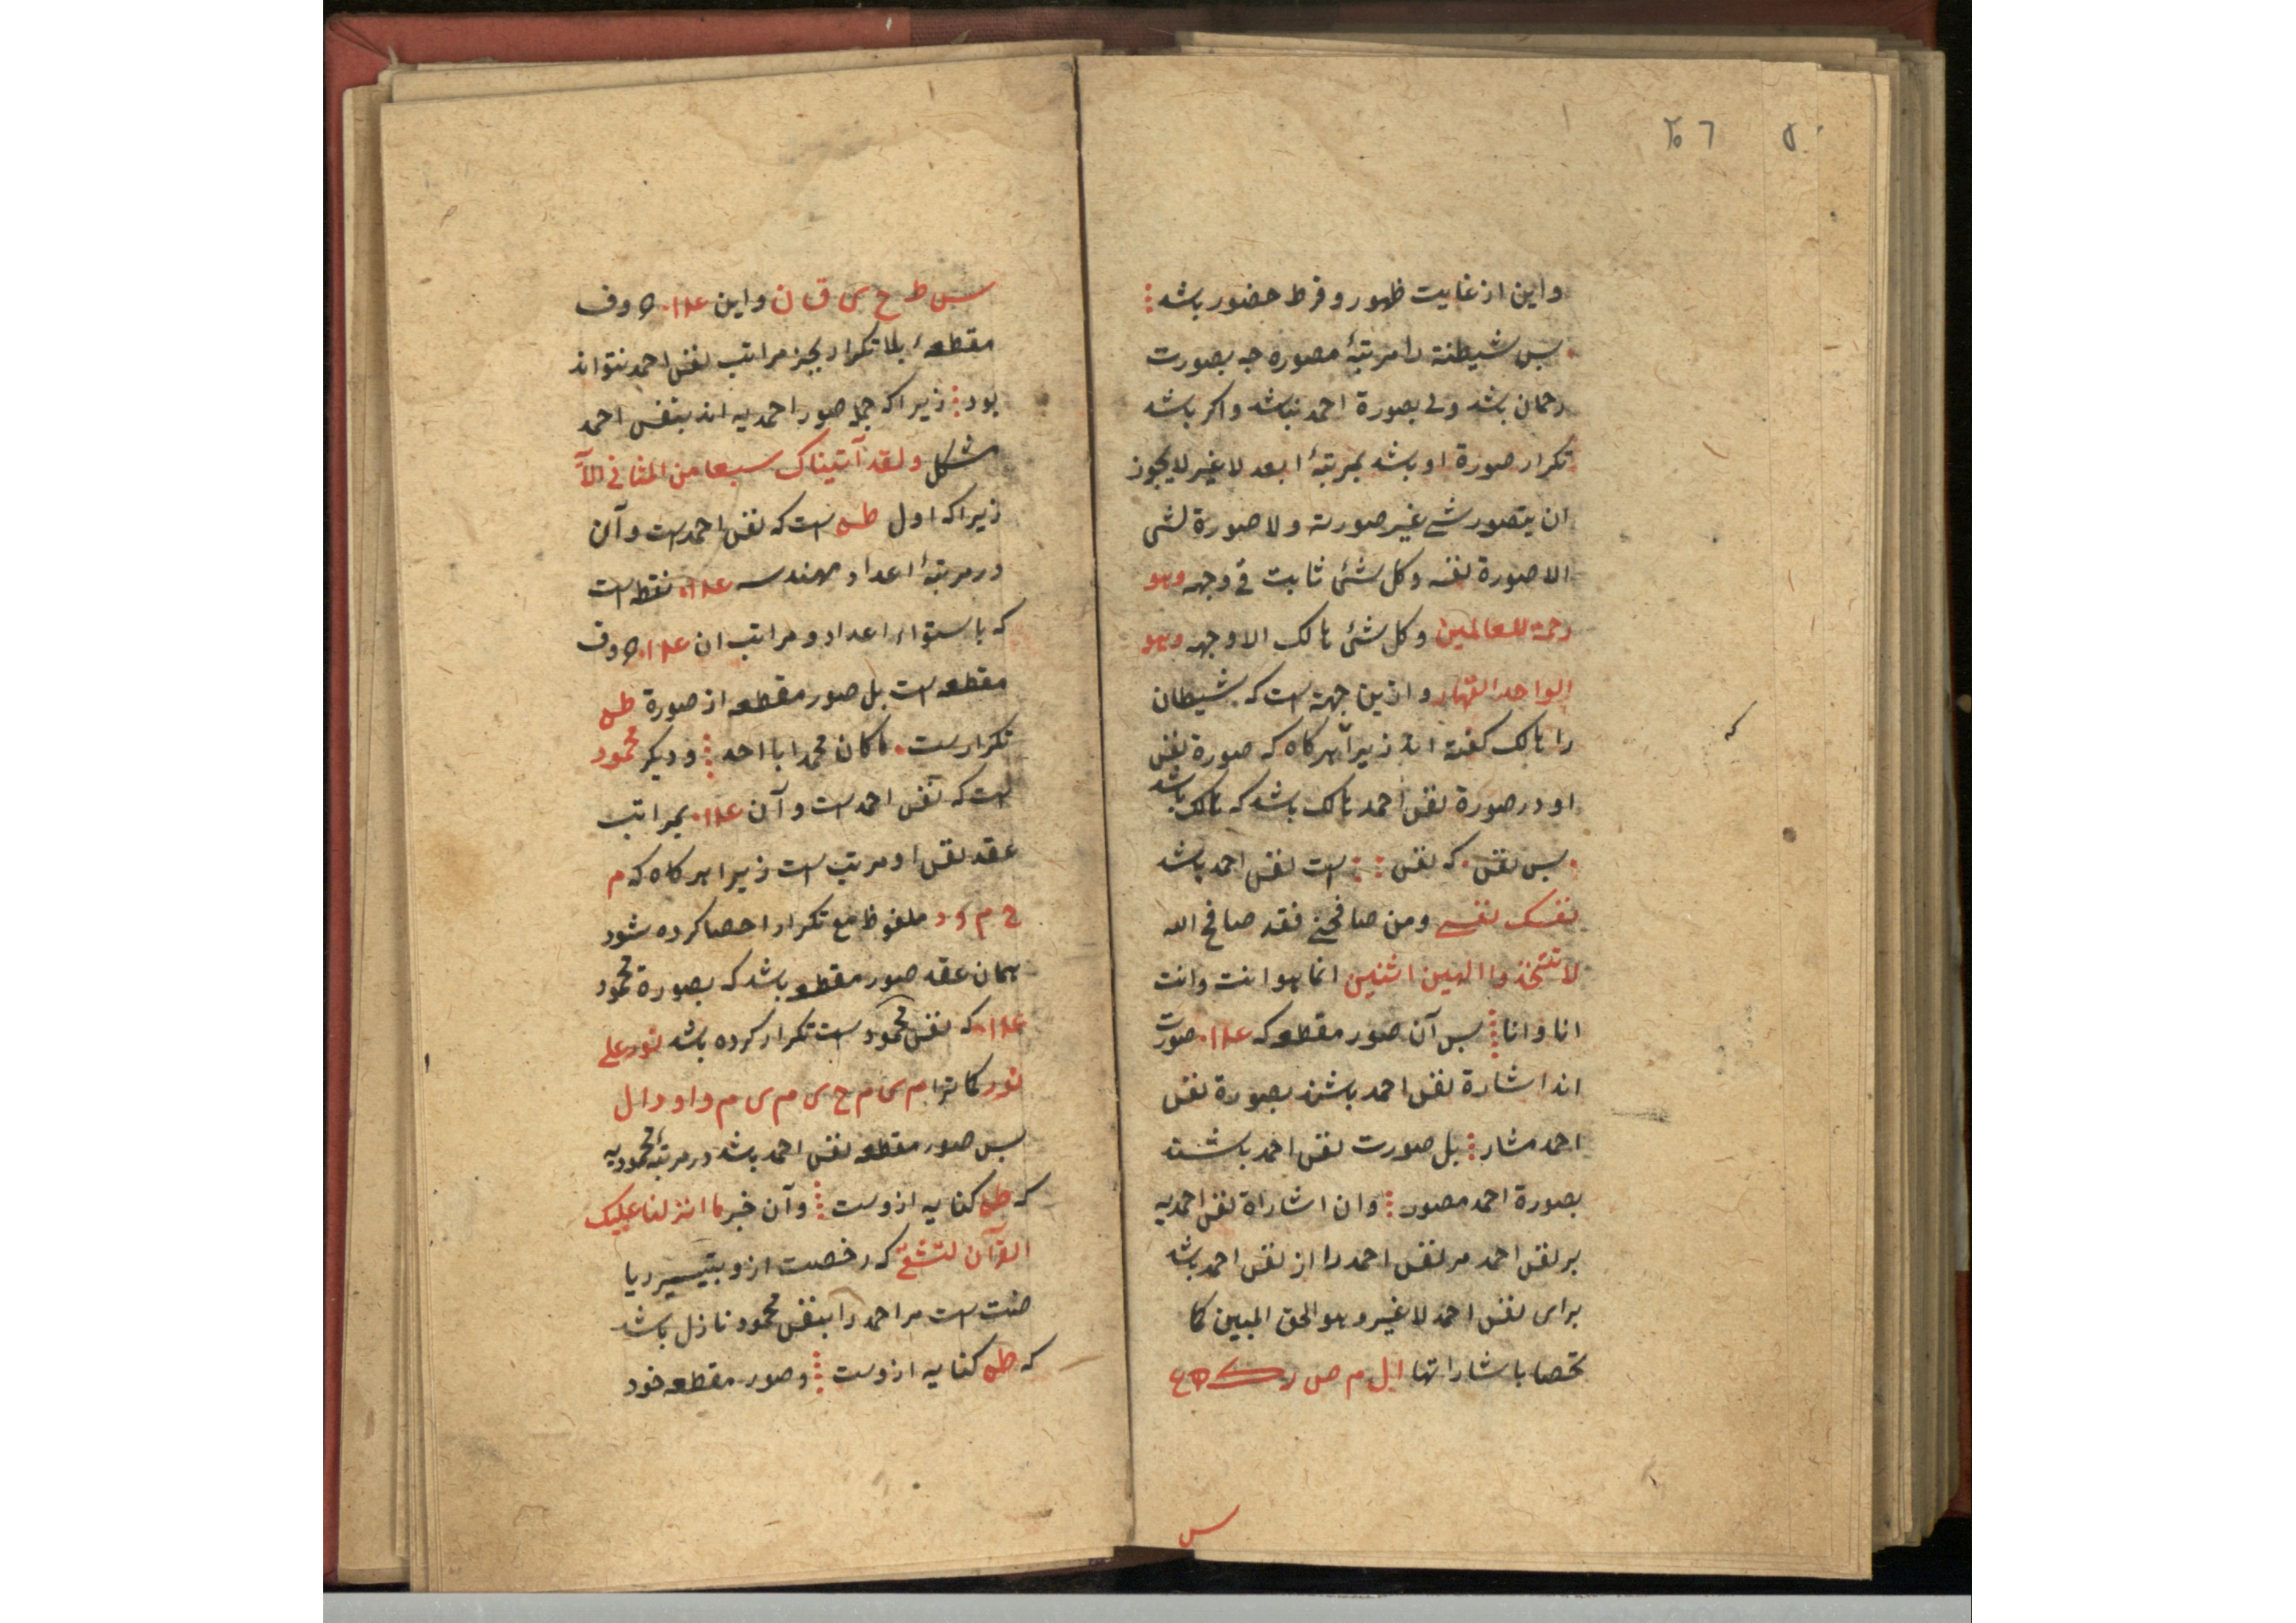 واین از غایت ظهور و فرط حضور باشد
بس شیطنة را مرتبهٔ مصوره جه بصورت
رحمان باشد ولی بصورة احمد نباشد واکر باشد
تکرار صورة او باشد بمرتبهٔ ابعد لا غیر لا یجوز
ان یتصور شی غیر صورته ولا صورة لشی
الا صورة نفسه وکل شئ ثابت فی وجهه وهو
رحمة للعالمین وکل شئ هالک الا وجهه وهو
الواحد القهار وازین جهة است که شیطان
را هالک کفته اند زیرا هرکاه که صورة نفس
او در صورة نفس احمد هالک باشد که هالک باشد
بس نفس که نفس است نفس احمد باشد
نفسک نفسی ومن صافحنی فقد صافح الله
لا تتخذوا الهین اثنین انما هو انت وانت
انا وانا بس آن صور مقطعه که صورت
اند اشارة نفس احمد باشند بصورة نفس
احمد مشار بل صورت نفس احمد باشند
بصورة احمد مصور وان اشاراة نفس احمدیه
بر نفس احمد مر نفس احمد را از نفس احمد باشد
برای نفس احمد لا غیر وهو الحق المبین کما
تحصا باشاراتها ا ل م ص ر ک ه ع
س
س ط ح ی ق ن واین ۱۴ حروف
مقطعهٔ بلا تکرار بجز مراتب نفس احمد نتواند
بود زیرا که جمله صور احمدیه اند بنفس احمد
مشکل ولقد آتیناک سبعا من المثانی
زیرا که اول طه است که نفس احمد است وآن
در مرتبهٔ اعداد مهندسه نقطه است
که باستواء اعداد ومراتب ان حروف
مقطعه است بل صور مقطعه از صورة طه
تکرارست ما کان محمد ابا احد ودیکر محمود
است که نفس احمد است وآن بمراتب
عقد نفس او مرتب است زیرا هرکاه که م
ح م و د ملفوظ مع تکرار احصا کرده شود
همان عقد صور مقطعه باشد که بصورة محمود
که نفس محمود است تکرار کرده باشد نور علی
نور کما ترا م ی م ح ی م ی م و ا و د ا ل
بس صور مقطعه نفس احمد باشد در مرتبهٔ محمودیه
که طه کنایه ازوست وآن خبر ما انزلنا علیک
القرآن لتشقی که رخصت ازو بتیسیر ریا
ضت است مر احمد را بنفس محمود نازل باشد
که طه کنایه ازوست وصور مقطعه خود